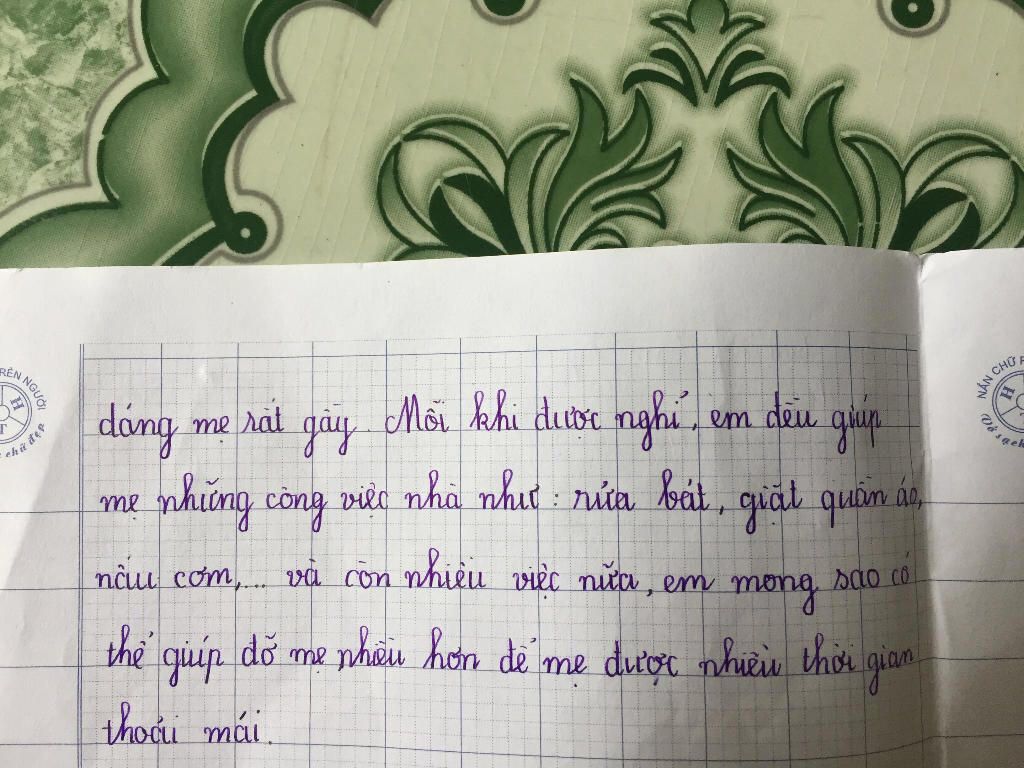 dáng mẹ rất gầy. Mỗi khi được nghỉ, em đều giúp
mẹ những công việc nhà như: rửa bát, giặt quần áo,
nấu cơm,... và còn nhiều việc nữa, em mong sao có
thể giúp đỡ mẹ nhiều hơn để mẹ được nhiều thời gian
thoải mái.
RÈN NGƯỜI
H
T
chữ đẹp
NẮN CHỮ R
H
Vở sạch